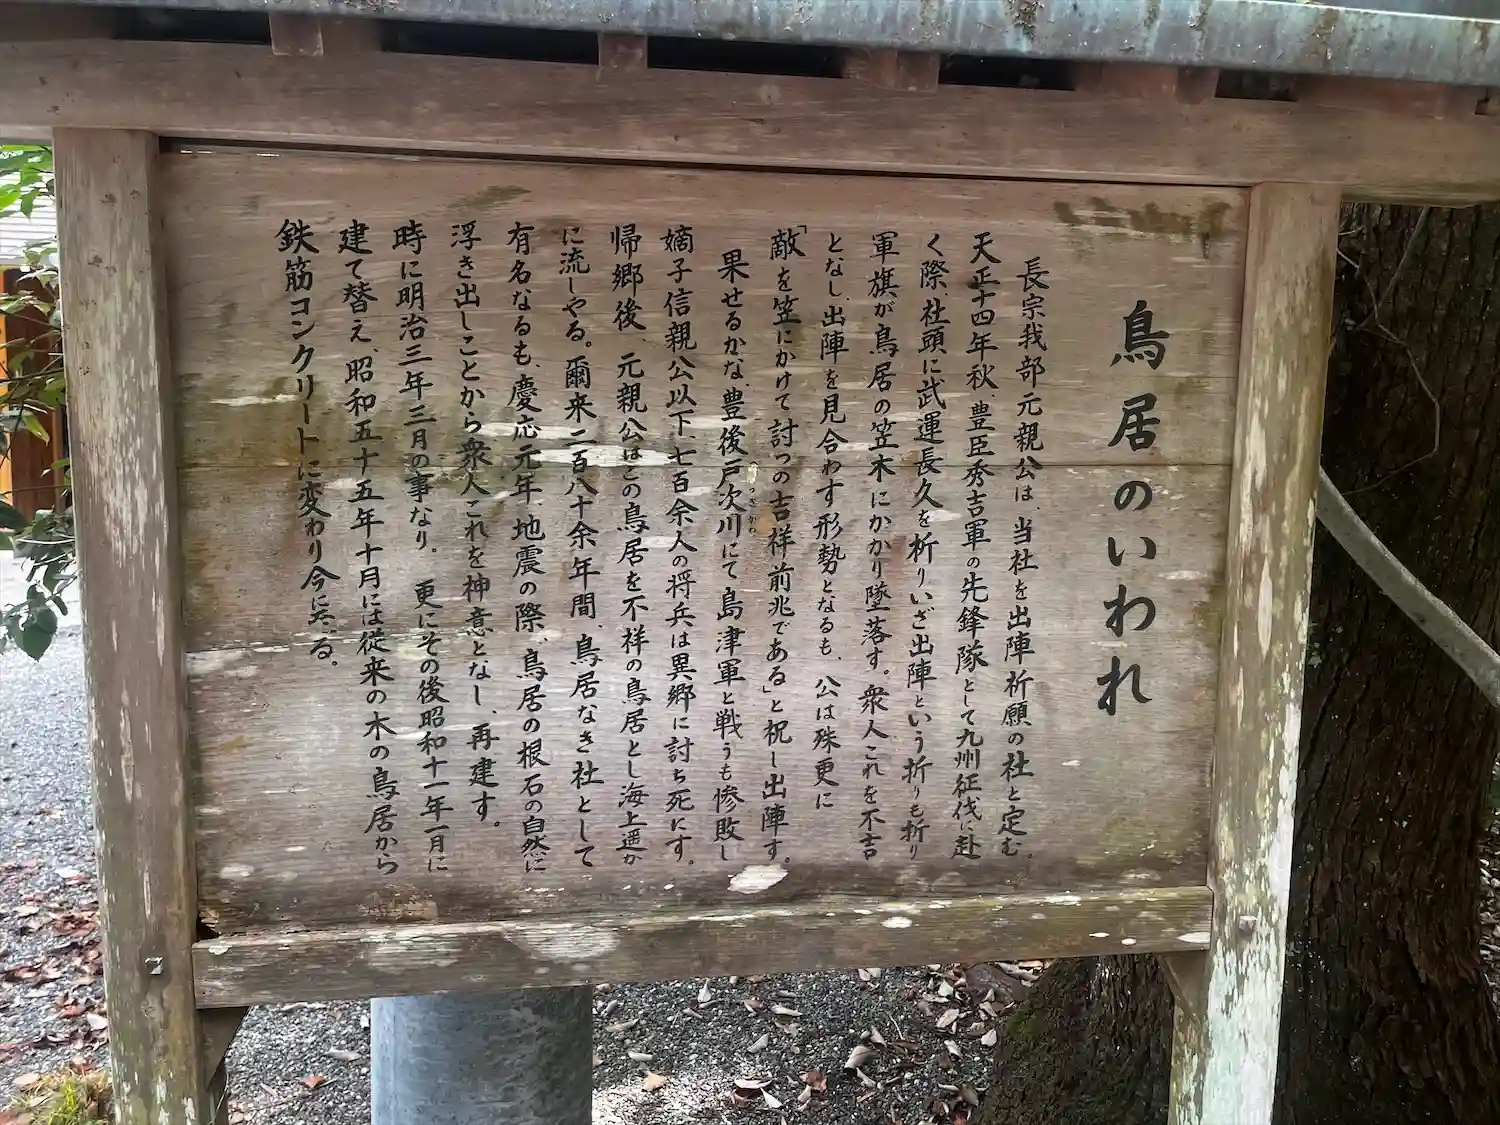 鳥居のいわれ
長宗我部元親公は、当社を出陣祈願の社と定む。
天正十四年秋、豊臣秀吉軍の先鋒隊として九州征伐に赴
く際、社頭に武運長久を祈りいざ出陣という折りも折り
軍旗が鳥居の笠木にかかり墜落す。衆人これを不吉
となし、出陣を見合わす形勢となるも、公は殊更に
「敵を笠にかけて討つの吉祥前兆である」と祝し出陣す。
果せるかな、豊後戸次川にて島津軍と戦うも惨敗し
っぎかわ
嫡子信親公以下、七百余人の将兵は異郷に討ち死にす。
帰郷後、元親公はこの鳥居を不祥の鳥居とし海上遥か
に流しやる。爾来二百八十余年間、鳥居なき社として
有名なるも、慶応元年、地震の際、鳥居の根石の自然に
浮き出しことから衆人これを神意となし、再建す。
時に明治三年三月の事なり。 更にその後昭和十一年一月に
建て替え、昭和五十五年十月には従来の木の鳥居から
鉄筋コンクリートに変わり今に至る。